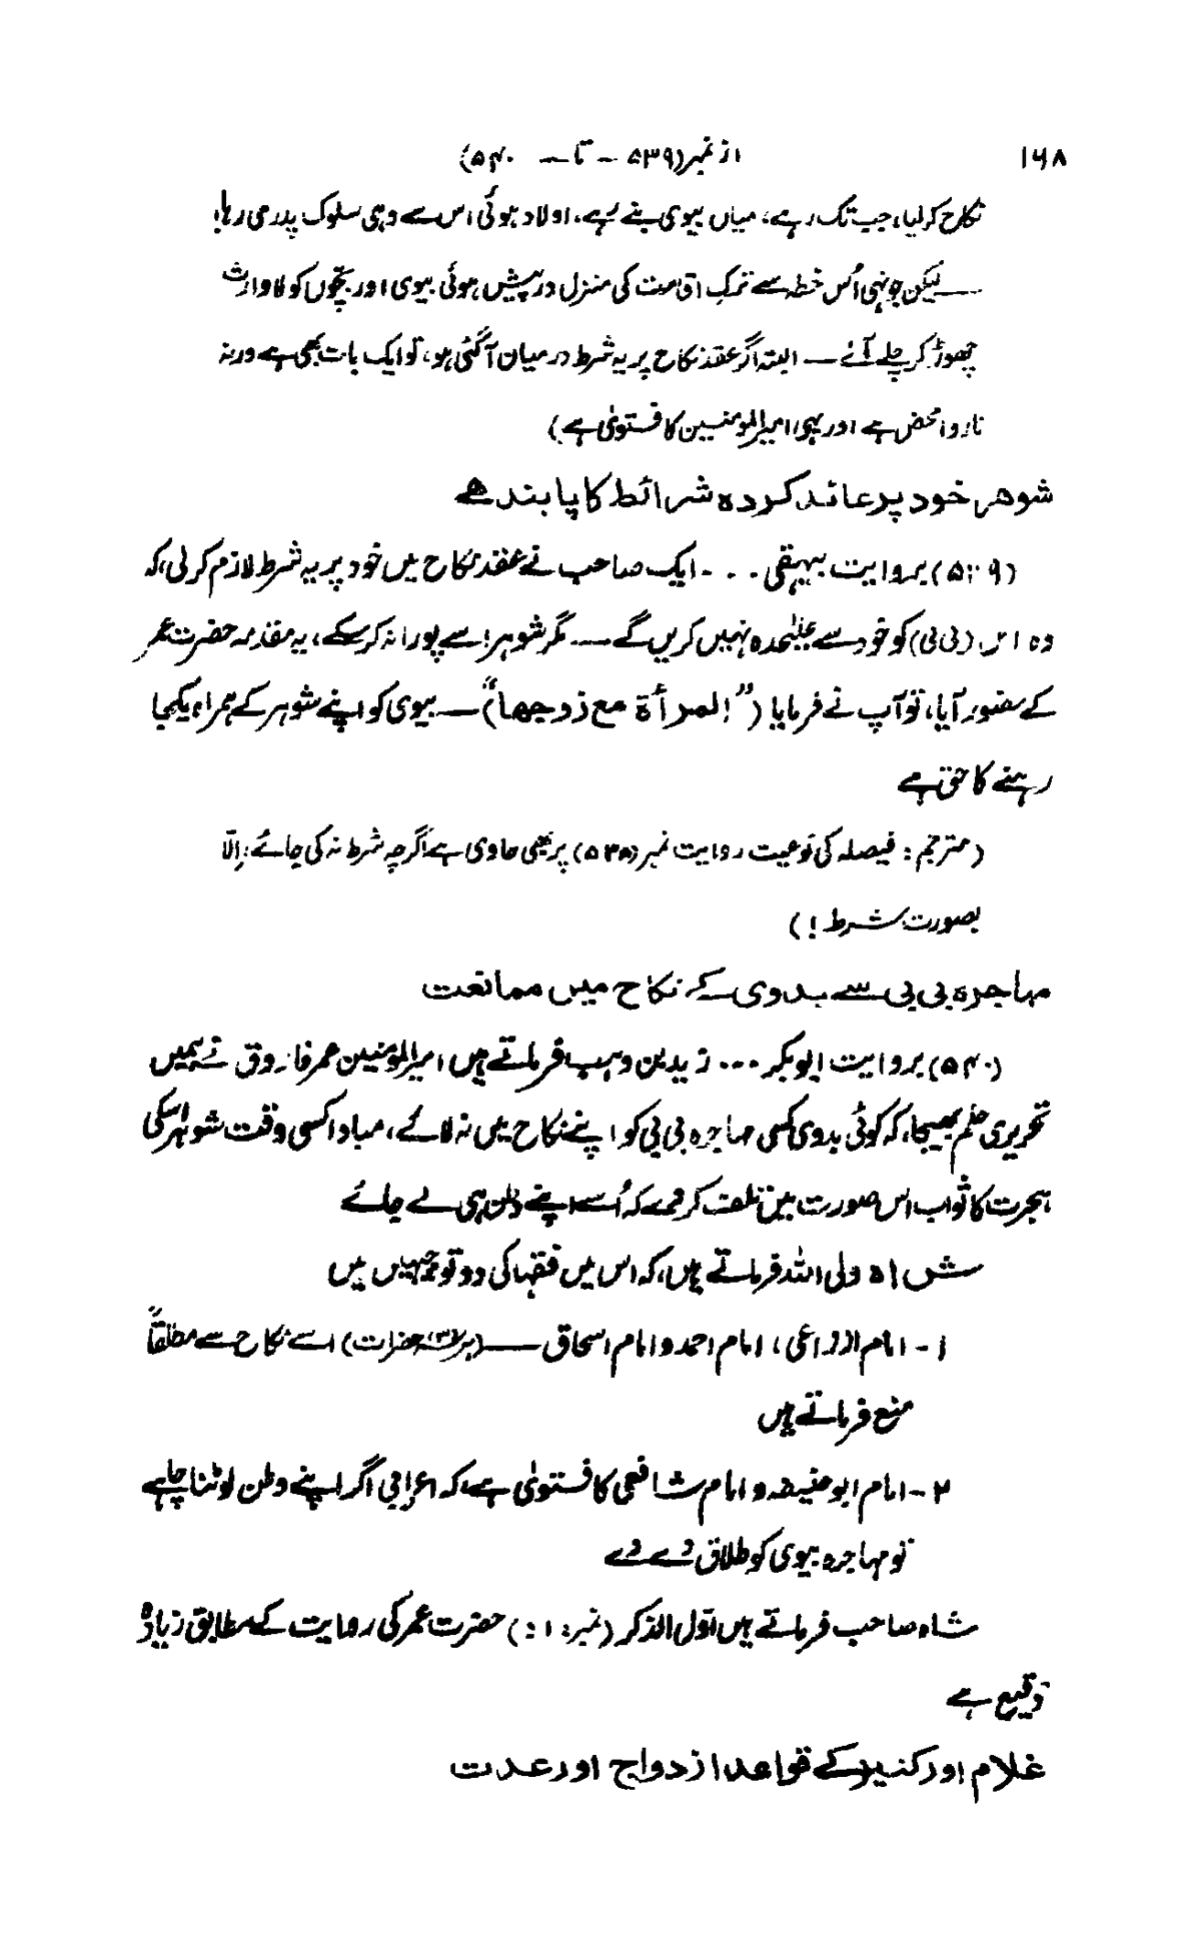 ۱۶۸ از نمبر (۵۳۹ - تا - ۵۴۰)
نکاح کر لیا، جب تک رہے، میاں بیوی بنے رہے، اولاد ہوئی اس سے وہی سلوک پدرمی رہا،
— لیکن جونہی اُس خطہ سے ترک اقامت کی منزل درپیش ہوئی بیوی اور بچوں کو لاوارث
چھوڑ کر چلے آئے — البتہ اگر عقد نکاح پر یہ شرط درمیان آگئی ہو، تو ایک بات بھی ہے ورنہ
ناروا محض ہے اور یہی امیرالمومنین کا فتویٰ ہے)
شوہر خود پر عائد کردہ شرائط کا پابند ہے
(۵۳۹) بروایت بیہقی . . . ۔ ایک صاحب نے عقد نکاح میں خود پر یہ شرط لازم کر لی، کہ
وہ اس (بی بی) کو خود سے علیٰحدہ نہیں کریں گے — مگر شوہر اسے پورا نہ کر سکے، یہ مقدمہ حضرت عمر
کے حضور آیا، تو آپ نے فرمایا (”المرأة مع زوجها“) — بیوی کو اپنے شوہر کے ہمراہ یکجا
رہنے کا حق ہے
(مترجم: فیصلہ کی نوعیت روایت نمبر (۵۳۸) پر بھی حاوی ہے اگرچہ شرط نہ کی جائے: اِلّا
بصورت شرط!)
مہاجرہ بی بی سے بدوی کے نکاح میں ممانعت
(۵۴۰) بروایت ابو بکر ... زید بن وہب فرماتے ہیں، امیرالمؤمنین عمر فاروق نے ہمیں
تحریری حکم بھیجا، کہ کوئی بدوی کسی مہاجرہ بی بی کو اپنے نکاح میں نہ لائے، مبادا کسی وقت شوہر اسکی
ہجرت کا ثواب اس صورت میں تلف کر دے کہ اُسے اپنے وطن ہی لے جائے
شاہ ولی اللہ فرماتے ہیں، کہ اس میں فقہا کی دو توجیہیں ہیں
۱ - امام اوزاعی، امام احمد و امام اسحاق — (ہر سہ حضرات) اسے نکاح سے مطلقاً
منع فرماتے ہیں
۲ - امام ابو حنیفہ و امام شافعی کا فتویٰ ہے، کہ اعرابی اگر اپنے وطن لوٹنا چاہے
تو مہاجرہ بیوی کو طلاق دے دے
شاہ صاحب فرماتے ہیں اوّل الذکر (نمبر: ۱:) حضرت عمر کی روایت کے مطابق زیادہ
وقیع ہے
غلام اور کنیز کے قواعد ازدواج اور عدت